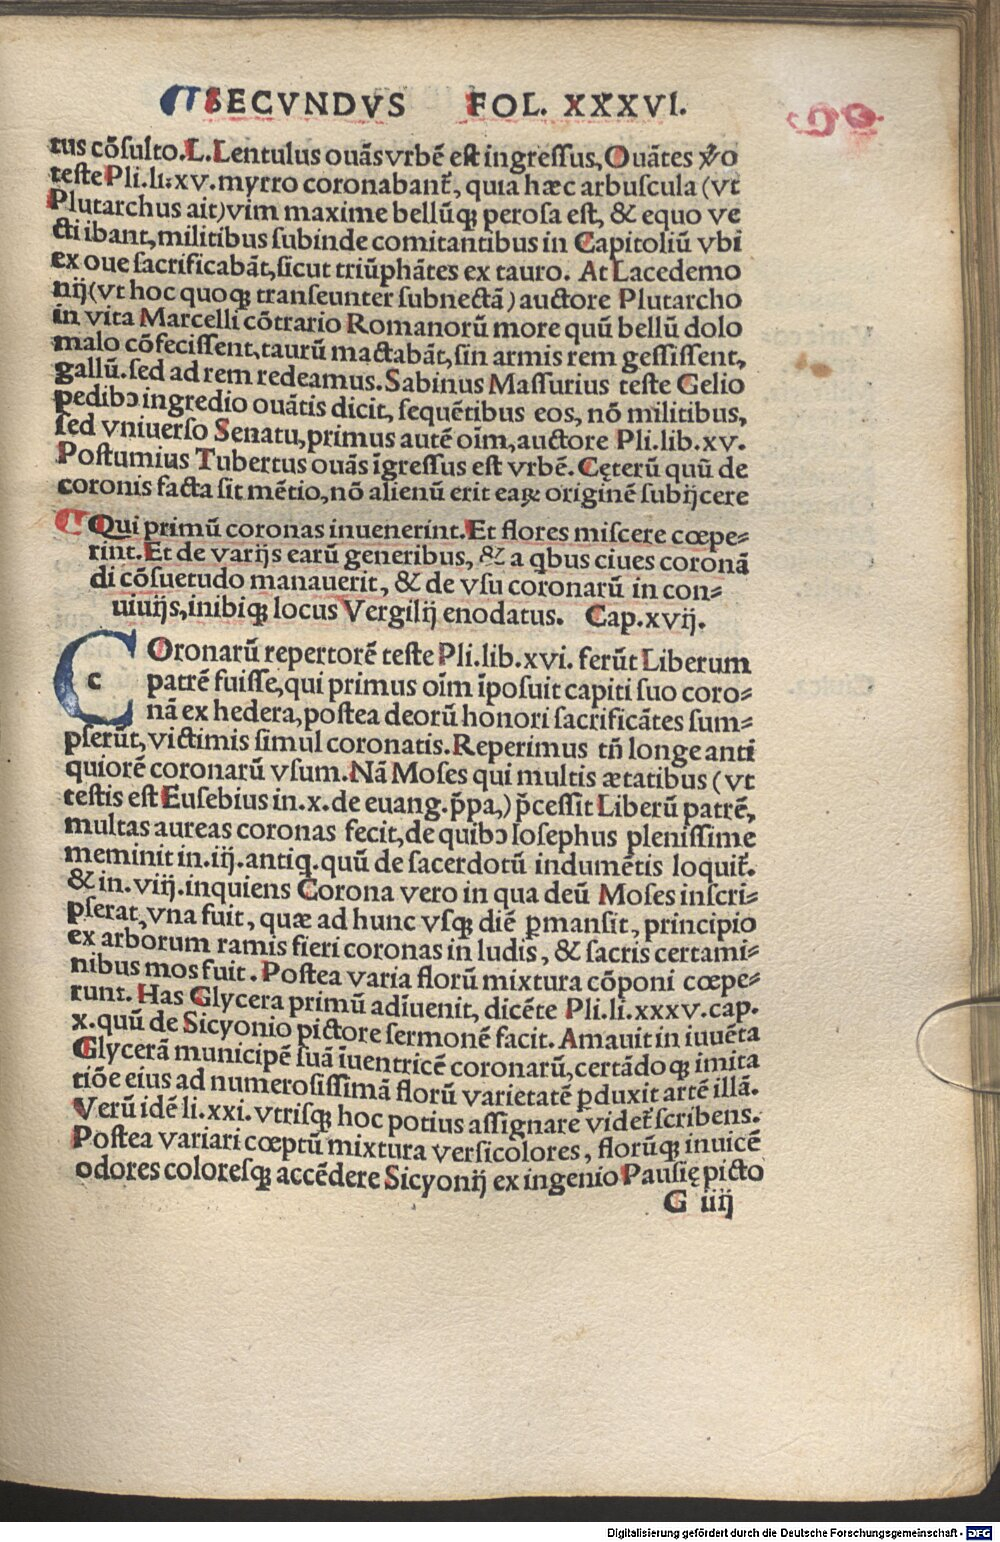 SECVNDVS FOL. XXXVI.
tus cõsulto.L.Lentulus ouãs vrbẽ est ingressus, Ouãtes v̾o
teste Pli.li.xv.myrto coronabant᷑, quia hæc arbuscula (vt
Plutarchus ait) vim maxime bellũqꝫ perosa est, & equo ve
cti ibant, militibus subinde comitantibus in Capitoliũ vbi
ex oue sacrificabãt, sicut triũphãtes ex tauro. At Lacedemo
nij (vt hoc quoqꝫ transeunter subnectã) auctore Plutarcho
in vita Marcelli cõtrario Romanorũ more quũ bellũ dolo
malo cõfecissent, taurũ mactabãt, sin armis rem gessissent,
gallũ. sed ad rem redeamus. Sabinus Massurius teste Gelio
pedibꝰ ingredio ouãtis dicit, sequẽtibus eos, nõ militibus,
sed vniuerso Senatu, primus autẽ oĩm, auctore Pli.lib.xv.
Postumius Tubertus ouãs ĩgressus est vrbẽ. Cęterũ quũ de
coronis facta sit mẽtio, nõ alienũ erit eaꝝ originẽ subijcere
Qui primũ coronas inuenerint. Et flores miscere cœpe⸗
rint. Et de varijs earũ generibus, & a qbus ciues coronã
di cõsuetudo manauerit, & de vsu coronarũ in con⸗
uiuijs, inibiqꝫ locus Vergilij enodatus. Cap.xvij.
COronarũ repertorẽ teste Pli.lib.xvi. ferũt Liberum
c patrẽ fuisse, qui primus oĩm ĩposuit capiti suo coro⸗
nã ex hedera, postea deorũ honori sacrificãtes sum⸗
pserũt, victimis simul coronatis. Reperimus tñ longe anti
quiorẽ coronarũ vsum. Nã Moses qui multis ætatibus (vt
testis est Eusebius in.x.de euang.p̃pa,) p̃cessit Liberũ patrẽ,
multas aureas coronas fecit, de quibꝰ Iosephus plenissime
meminit in.iij.antiq.quũ de sacerdotũ indumẽtis loquit᷑.
& in.viij.inquiens Corona vero in qua deũ Moses inscri⸗
pserat, vna fuit, quæ ad hunc vsqꝫ diẽ ꝑmansit, principio
ex arborum ramis fieri coronas in ludis, & sacris certami⸗
nibus mos fuit. Postea varia florũ mixtura cõponi cœpe⸗
runt. Has Glycera primũ adĩuenit, dicẽte Pli.li.xxxv.cap.
x.quũ de Sicyonio pictore sermonẽ facit. Amauit in iuuẽta
Glycerã municipẽ suã ĩuentricẽ coronarũ, certãdoqꝫ imita
tiõe eius ad numerosissimã florũ varietatẽ ꝑduxit artẽ illã.
Verũ idẽ li.xxi.vtrisqꝫ hoc potius assignare videt᷑ scribens.
Postea variari cœptũ mixtura versicolores, florũqꝫ inuicẽ
odores coloresqꝫ accẽdere Sicyonij ex ingenio Pausię picto
G iiij
Digitalisierung gefördert durch die Deutsche Forschungsgemeinschaft - DFG